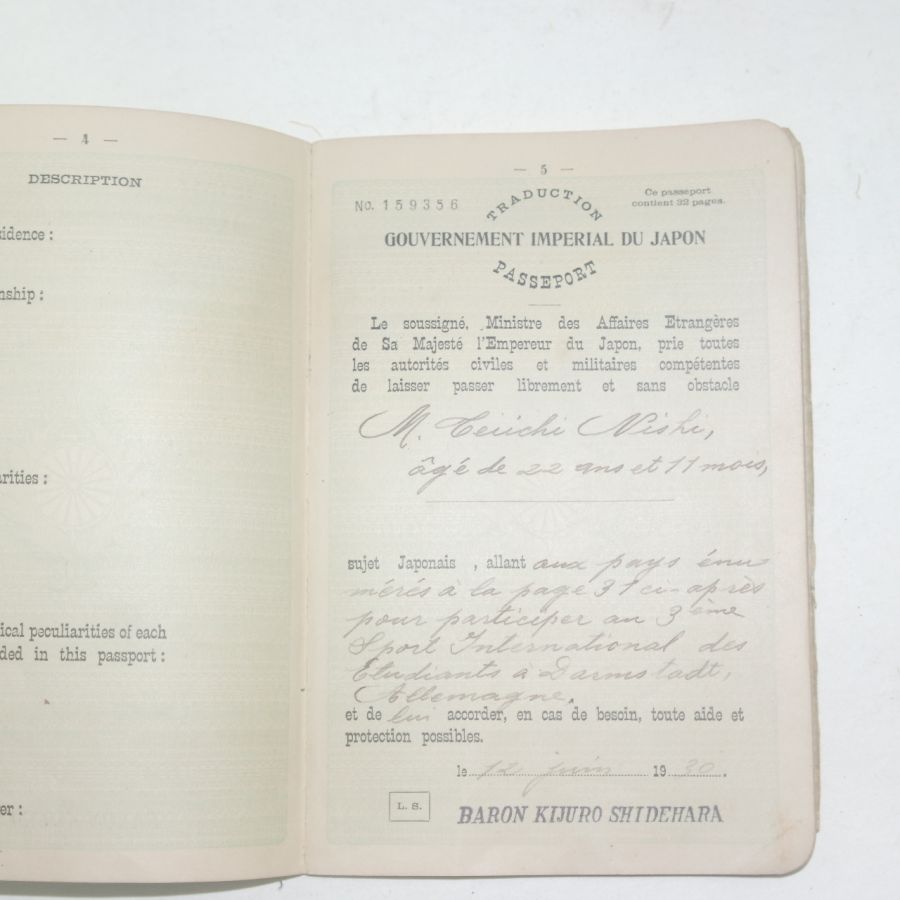 — 4 —
DESCRIPTION
sidence :
nship :
arities :
ical peculiarities of each
ded in this passport :
er :
— 5 —
No. 159356
TRADUCTION
Ce passeport
contient 32 pages.
GOUVERNEMENT IMPERIAL DU JAPON
PASSEPORT
Le soussigné, Ministre des Affaires Etrangères
de Sa Majesté l'Empereur du Japon, prie toutes
les autorités civiles et militaires compétentes
de laisser passer librement et sans obstacle
M. Teiichi Nishi,
âgé de 22 ans et 11 mois,
sujet Japonais , allant aux pays énu
mérés à la page 31 ci-après
pour participer au 3ème
Sport International des
Etudiants à Darmstadt,
Allemagne,
et de lui accorder, en cas de besoin, toute aide et
protection possibles.
le 12 juin 1930.
L. S.
BARON KIJURO SHIDEHARA